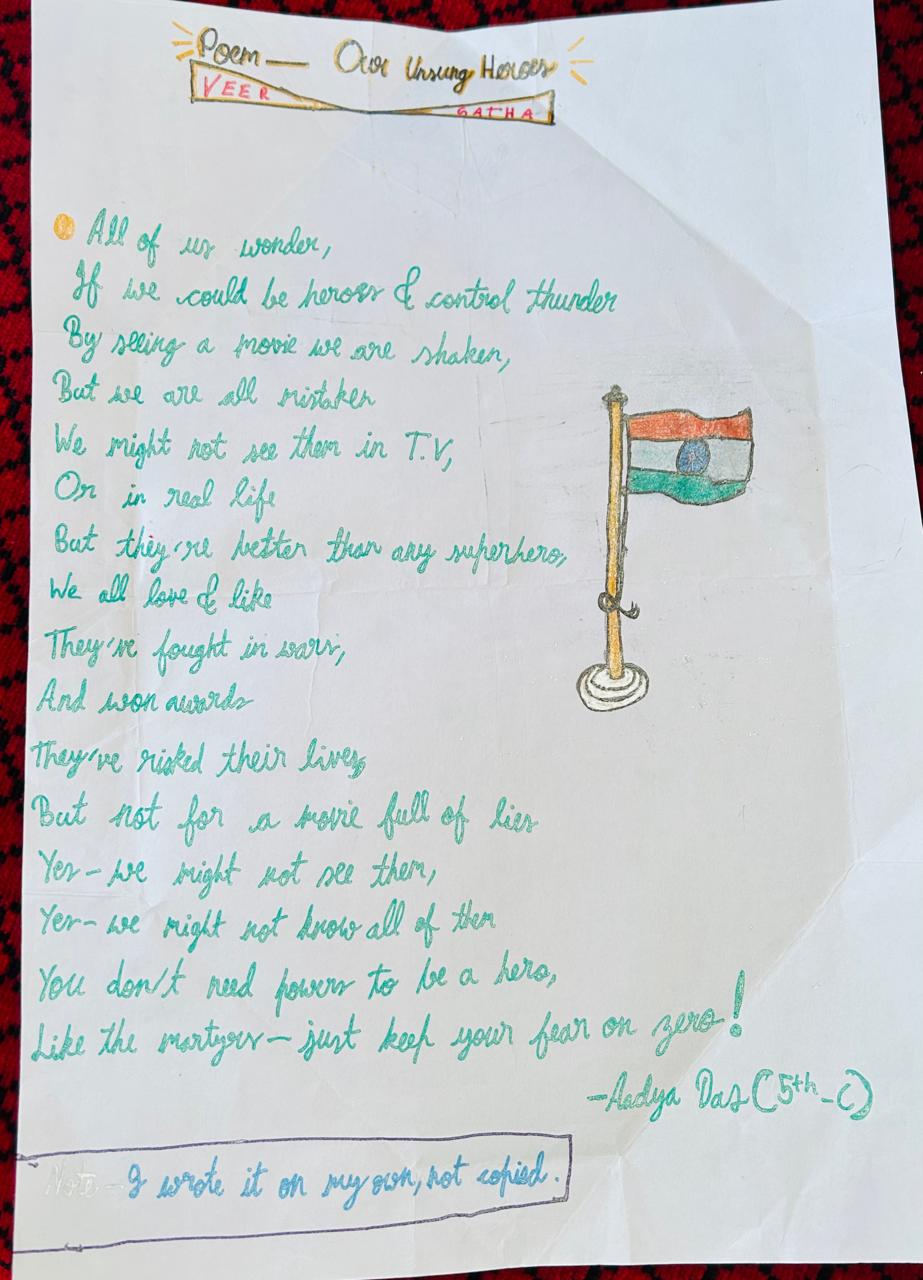 Poem — Our Unsung Heroes
VEER GATHA
All of us wonder,
If we could be heroes & control thunder
By seeing a movie we are shaken,
But we are all mistaken
We might not see them in T.V,
Or in real life
But they're better than any superhero,
We all love & like
They've fought in wars,
And won awards
They've risked their lives,
But not for a movie full of lies
Yes - we might not see them,
Yes - we might not know all of them
You don't need powers to be a hero,
Like the martyrs - just keep your fear on zero!
- Aadya Das (5th - C)
Note - I wrote it on my own, not copied.